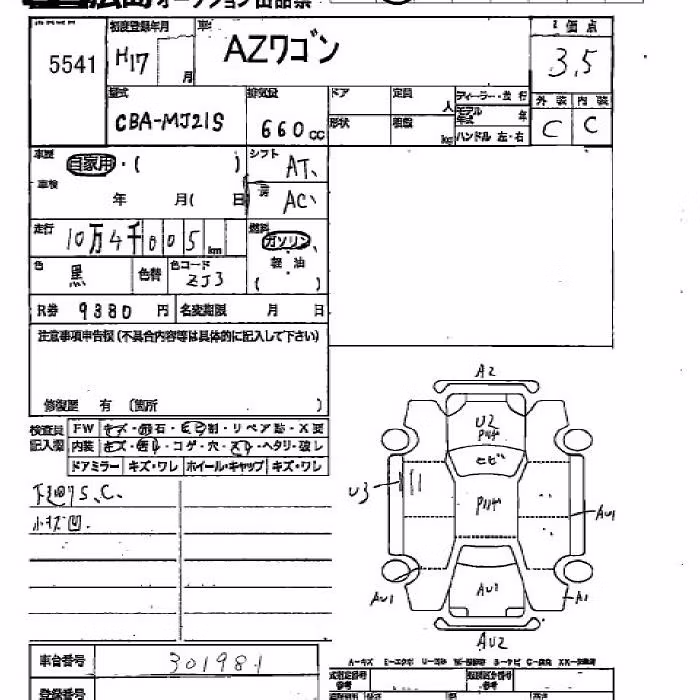 広島オークション出品票
5541
初度登録年月
H17
月
車名
AZワゴン
評価点
3.5
型式
CBA-MJ21S
排気量
660cc
ドア
定員
人
ディーラー・並行
モデル年式
年
形状
積載
kg
ハンドル 左・右
外装 内装
C C
車歴
自家用・( )
シフト
AT
車検
年 月( 日)
AC
走行
10万4千005km
燃料
ガソリン
軽油
( )
色
黒
色替
色コード
ZJ3
R券 9380円
名変期限 月 日
注意事項申告欄(不具合内容等は具体的に記入して下さい)
修復歴 有 (箇所 )
検査員記入欄
FW
キズ・飛石・ヒビ割・リペア跡・X要
内装
キズ・汚れ・コゲ・穴・スレ・ヘタリ・破レ
ドアミラー キズ・ワレ ホイール・キャップ キズ・ワレ
下廻りS、C、
小キズ凹.
A2
U2
ヒビ
U3
AU1
AU1
AU2
A1
AU2
車台番号
301981
登録番号